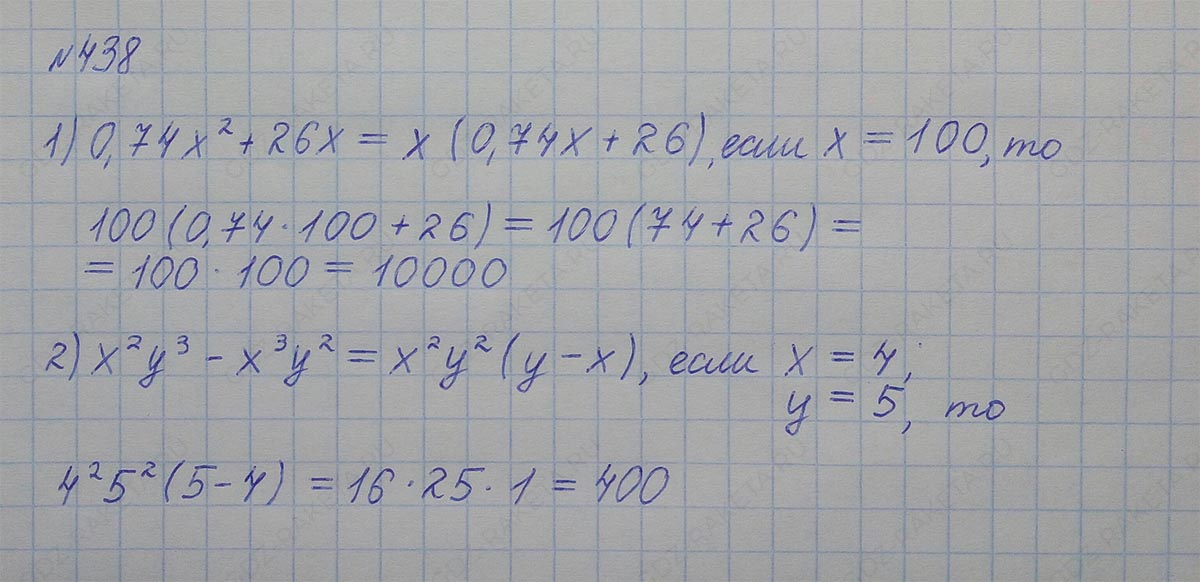 №438
1) 0,74x² + 26x = x (0,74x + 26), если x = 100, то
100 (0,74 · 100 + 26) = 100 (74 + 26) =
= 100 · 100 = 10000
2) x²y³ - x³y² = x²y² (y - x), если x = 4;
y = 5, то
4²5² (5 - 4) = 16 · 25 · 1 = 400
GDZ-RAKETA.RU